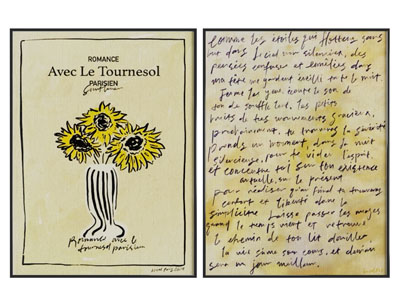 ROMANCE
Avec Le Tournesol
PARISIEN
Romance avec le
tournesol parisien
Comme les étoiles qui flottent sans
dans le ciel silencieux, des
pensées confuses et emmêlées dans
ma tête me gardent éveillé toute la nuit.
Ferme les yeux, écoute le son de
ton de souffle lent, les petits
bruits de tes mouvements gracieux,
prochainement, tu trouveras la sérénité
prends un moment, dans la nuit
silencieuse, pour te vider l'esprit,
et concentre toi sur ton existence
actuelle, sur le présent
pour réaliser qu'au final tu trouveras
confort et liberté dans la
simplicité. Laisse passer les nuages
quand le temps vient et retrouve
le chemin de ton lit douillet
la vie suit son cours, et demain
sera un jour meilleur.